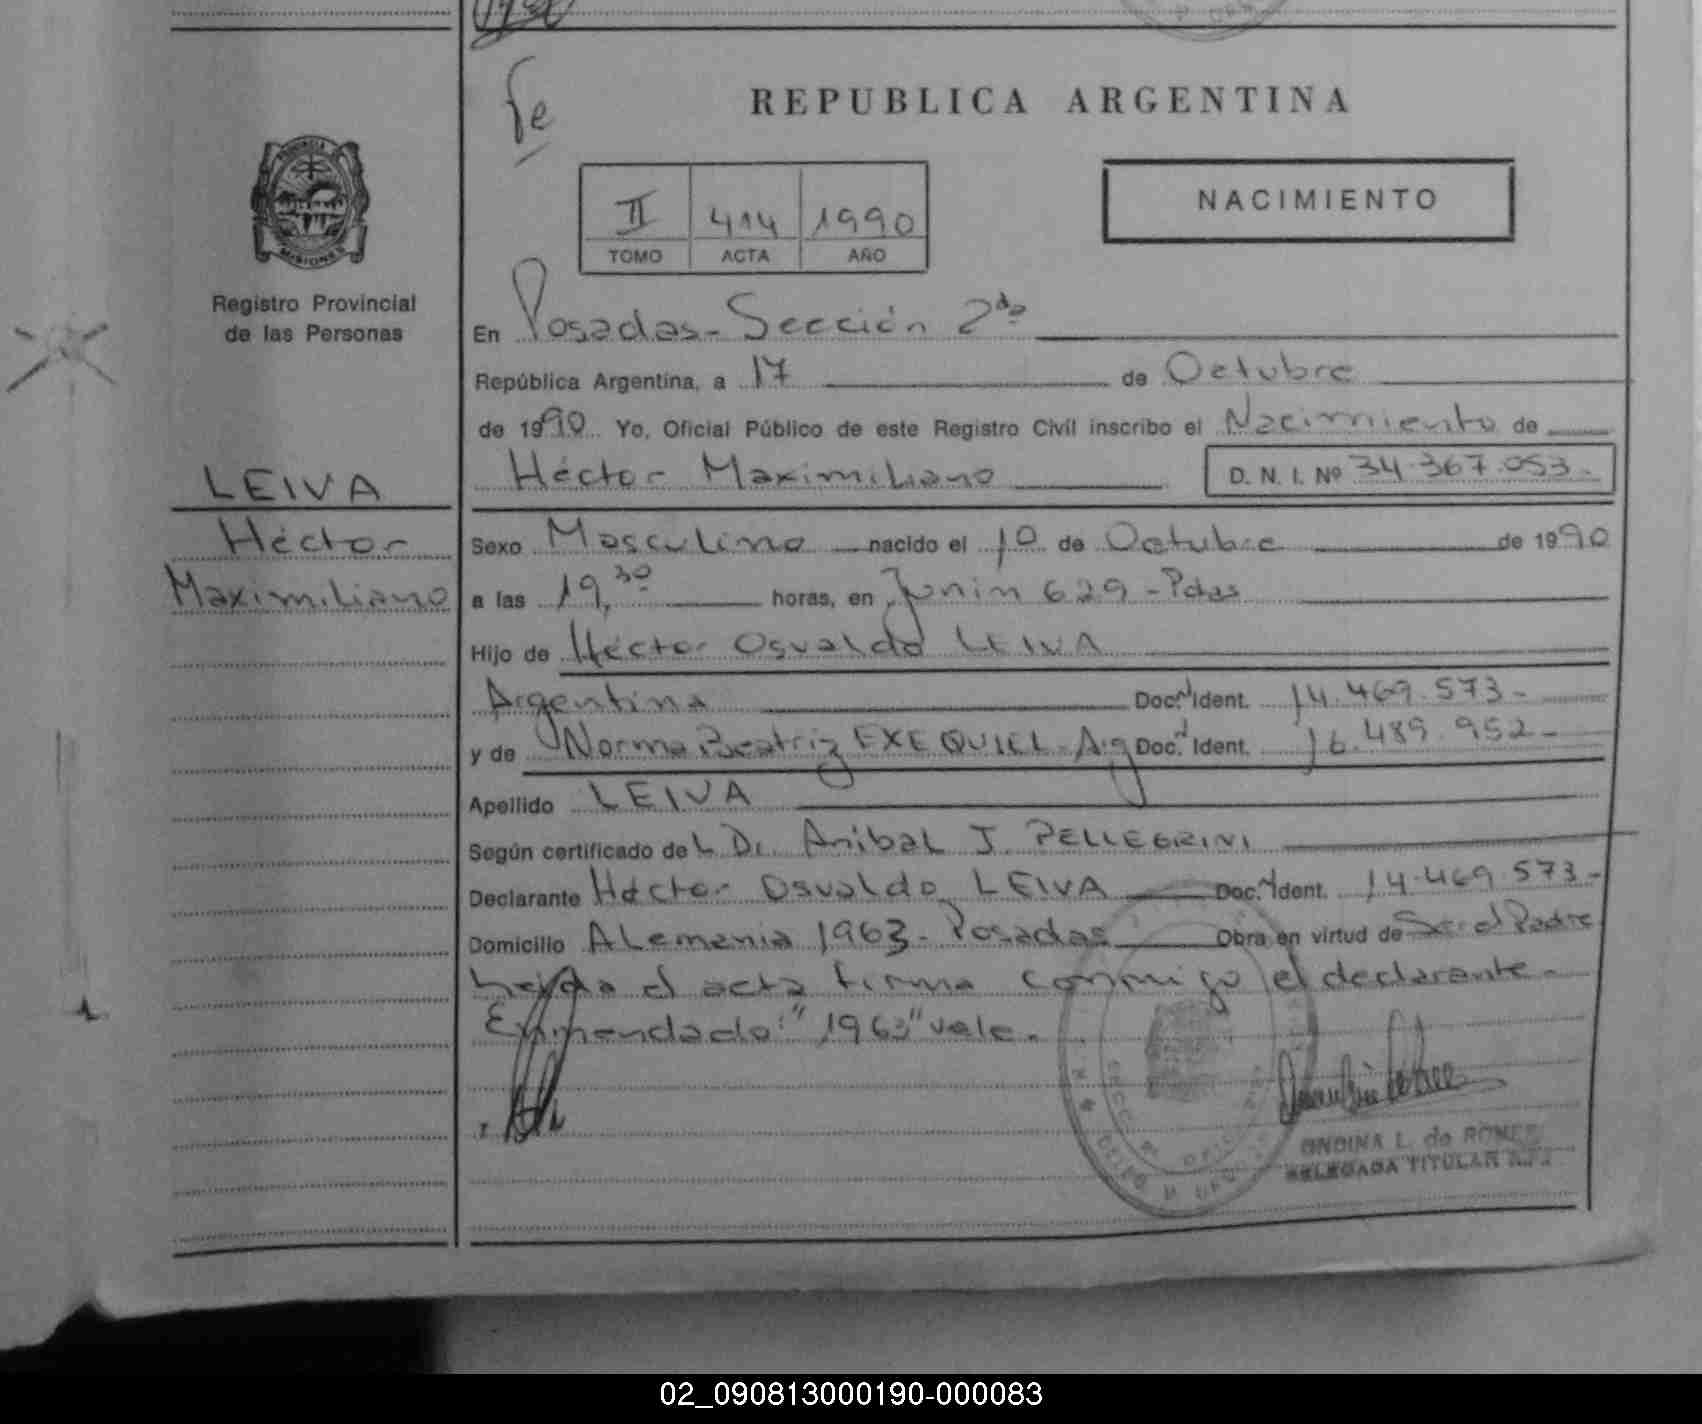 REPUBLICA ARGENTINA
PROVINCIA
MISIONES
Registro Provincial
de las Personas
LEIVA
Héctor
Maximiliano
Fe
II 414 1990
TOMO ACTA AÑO
NACIMIENTO
En Posadas - Sección 2da
República Argentina, a 17 de Octubre
de 1990 Yo, Oficial Público de este Registro Civil inscribo el Nacimiento de
Héctor Maximiliano D. N. I. Nº 34.367.053.-
Sexo Masculino nacido el 10 de Octubre de 1990
a las 19,30 horas, en Junin 629 - Pdas
Hijo de Héctor Osvaldo LEIVA
Argentina Doc. Ident. 14.469.573-
y de Norma Beatriz EXEQUIEL - Arg Doc. Ident. 16.489.952-
Apellido LEIVA
Según certificado del Dr. Anibal J. PELLEGRINI
Declarante Héctor Osvaldo LEIVA Doc. Ident. 14.469.573-
Domicilio Alemania 1963 - Posadas Obra en virtud de Ser el Padre
Leida el acta firma conmigo el declarante -
Enmendado: "1963" vale.
ONDINA L. de
DELEGADA TITULAR
02_090813000190-000083